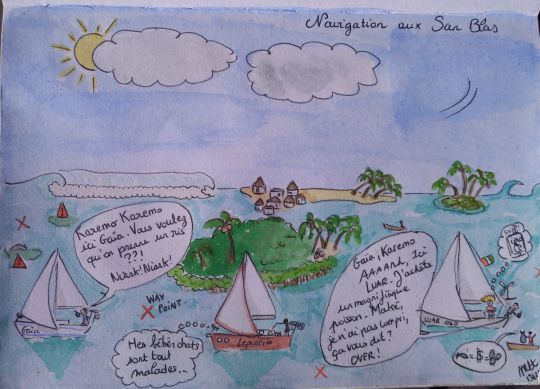 Navigation aux San Blas
Karemo Karemo
ici Gaïa. Vous voulez
qu'on prenne un ris
??!
Niark! Niark!
Gaïa
WAY
POINT
Mes bébés chats
sont tout
malades...
Gaïa, Karemo
AAAAND, Ici
LUAR. J'achète
un magnifique
poisson. Mais,
je n'ai pas compris,
ça vous dit?
OVER!
LUAR
= $ =